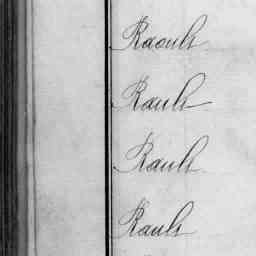 Raoult
Rault
Rault
Rault